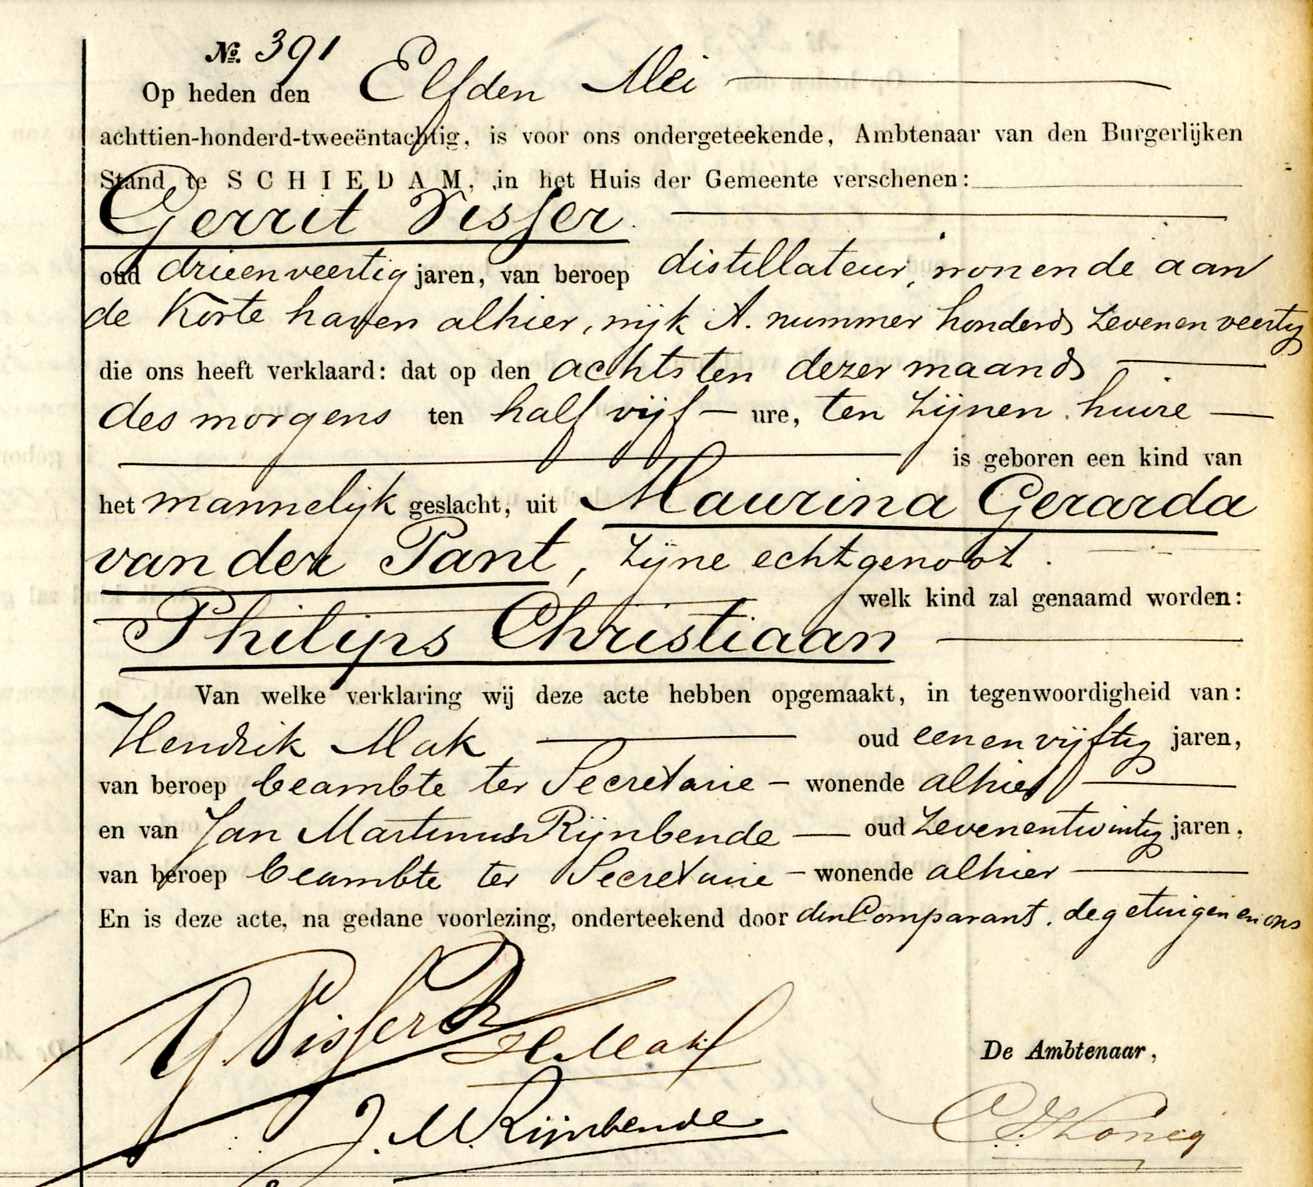 No. 391
Op heden den Elfden Mei
achttien-honderd-tweeëntachtig, is voor ons ondergeteekende, Ambtenaar van den Burgerlijken
Stand te SCHIEDAM, in het Huis der Gemeente verschenen:
Gerrit Visser
oud drieenveertig jaren, van beroep distillateur, wonende aan
de Korte haven alhier, wijk A. nummer honderd zevenenveertig
die ons heeft verklaard: dat op den achtsten dezer maand
des morgens ten half vijf ure, ten zijnen huize
is geboren een kind van
het mannelijk geslacht, uit Maurina Gerarda
van der Pant, zijne echtgenoot.
welk kind zal genaamd worden:
Philips Christiaan
Van welke verklaring wij deze acte hebben opgemaakt, in tegenwoordigheid van:
Hendrik Mak oud eenenvijftig jaren,
van beroep beambte ter Secretarie wonende alhier
en van Jan Martinus Rijnbende oud zevenentwintig jaren,
van beroep beambte ter Secretarie wonende alhier
En is deze acte, na gedane voorlezing, onderteekend door den Comparant, de getuigen en ons
G Visser
H Mak
De Ambtenaar,
J. M. Rijnbende